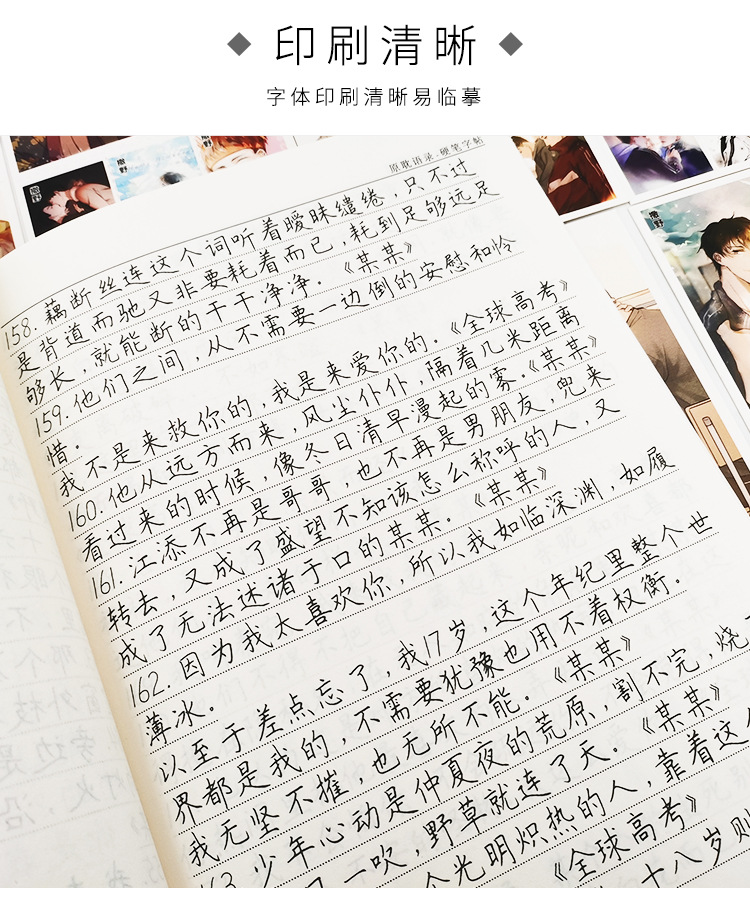 印刷清晰
字体印刷清晰易临摹
撒野
撒野
撒野
原耽语录-硬笔字帖
158.藕断丝连这个词听着暧昧缱绻，只不过
是背道而驰又非要耗着而已，耗到足够远足
够长，就能断的干干净净。《某某》
159.他们之间，从不需要一边倒的安慰和怜
惜。
我不是来救你的，我是来爱你的。《全球高考》
160.他从远方而来，风尘仆仆，隔着几米距离
看过来的时候，像冬日清早漫起的雾。《某某》
161.江添不再是哥哥，也不再是男朋友，兜来
转去，又成了盛望不知该怎么称呼的人，又
成了无法述诸于口的某某。《某某》
162.因为我太喜欢你，所以我如临深渊，如履
薄冰。
以至于差点忘了，我17岁，这个年纪里整个世
界都是我的，不需要犹豫也用不着权衡。
我无坚不摧，也无所不能。《某某》
163.少年心动是仲夏夜的荒原，割不完，烧
一吹，野草就连了天。《某某》
个光明炽热的人，靠着这
《全球高考》
十八岁则